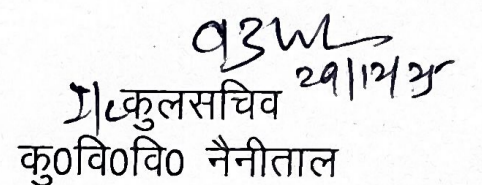 29/12/25
I/c कुलसचिव
कु0वि0वि0 नैनीताल